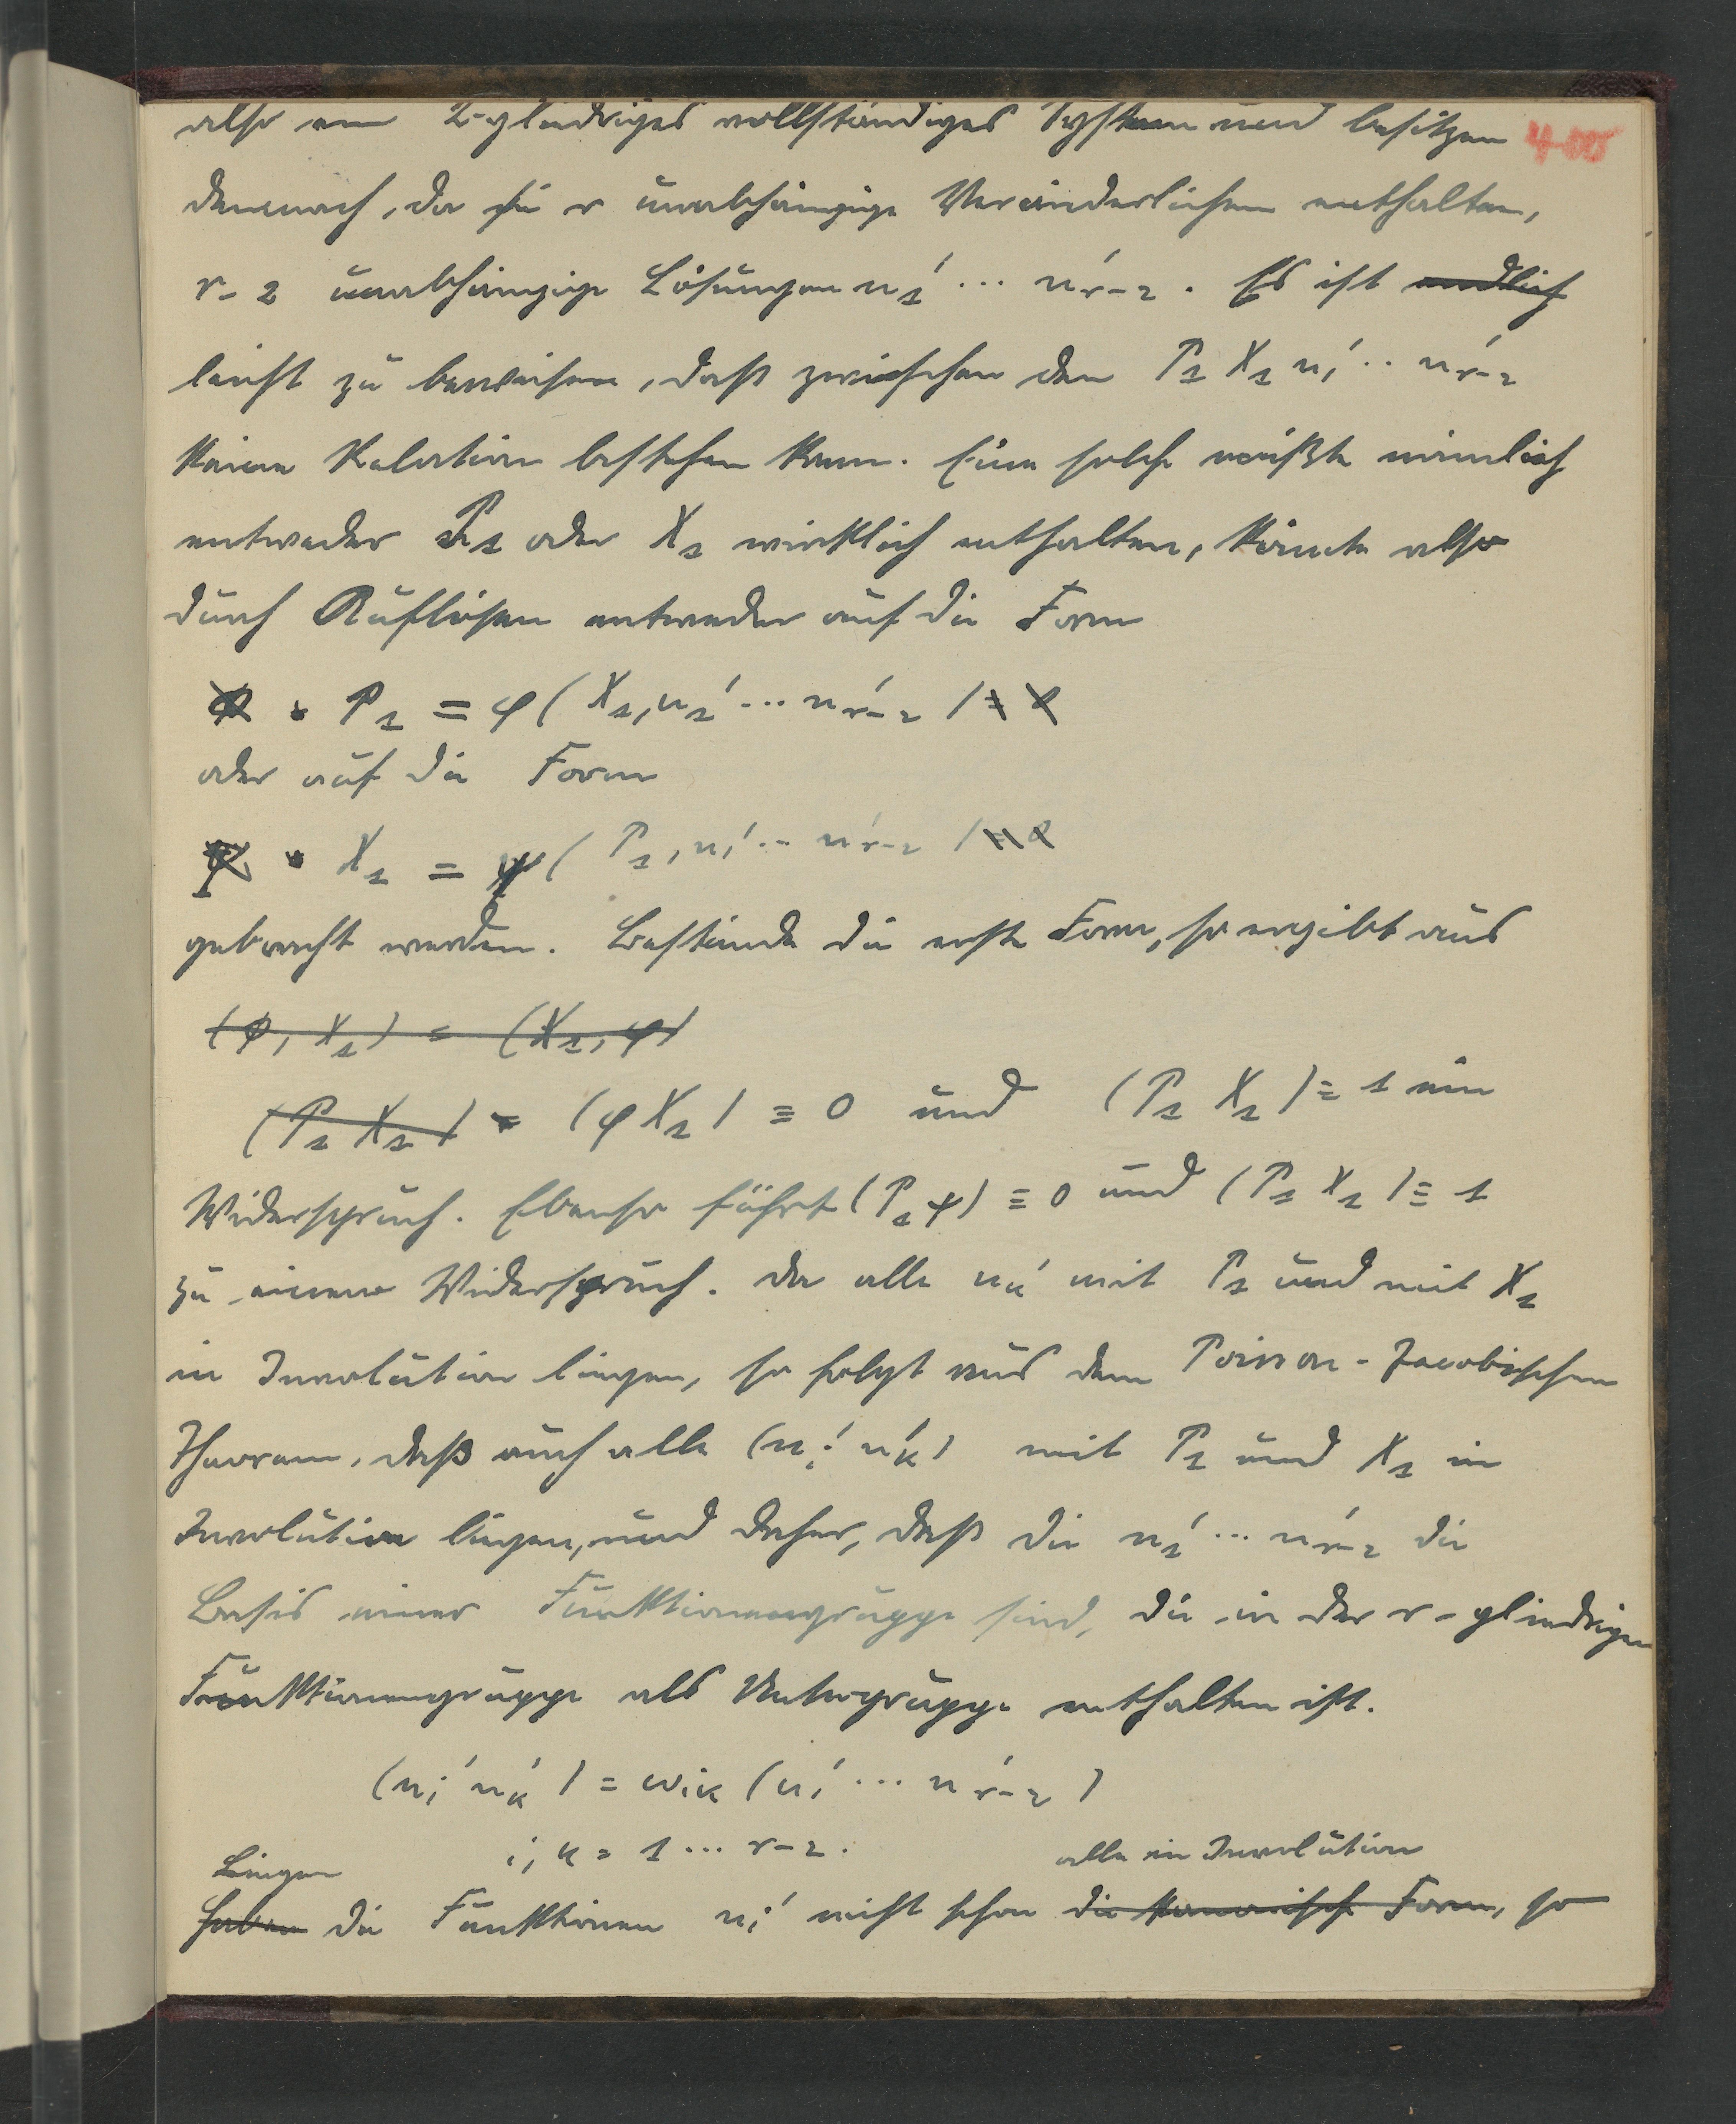 also ein 2-gliedriges vollständiges System und besitzen
demnach, da sie r unabhängige Veränderlichen enthalten,
r-2 unabhängige Lösungen u₁' ... u'ᵣ₋₂. Es ist endlich
leicht zu beweisen, daß zwischen den P₁ X₁ u₁' .. u'ᵣ₋₂
keine Relation bestehen kann. Eine solche müßte nämlich
entweder P₁ oder X₁ wirklich enthalten, könnte also
durch Auflösen entweder auf die Form
P₁ = φ(X₁, u₁' ... u'ᵣ₋₂)
oder auf die Form
X₁ = ψ(P₁, u₁' ... u'ᵣ₋₂)
gebracht werden. Bestände die erste Form, so ergibt aus
(φ, X₁) = (X₁, φ)
(P₁ X₁) = (φ X₁) ≡ 0 und (P₁ X₁) = 1 ein
Widerspruch. Ebenso führt (P₁ ψ) ≡ 0 und (P₁ X₁) ≡ 1
zu einem Widerspruch. Da alle uₖ' mit P₁ und mit X₁
in Involution liegen, so folgt aus dem Poisson-Jacobischen
Theorem, daß auch alle (uᵢ' uₖ') mit P₁ und X₁ in
Involution liegen, und daher, daß die u₁' ... u'ᵣ₋₂ die
Basis einer Funktionengruppe sind, die in der r-gliedrigen
Funktionengruppe als Untergruppe enthalten ist.
(uᵢ' uₖ') = ωᵢₖ (u₁' ... u'ᵣ₋₂)
i, k = 1 ... r-2.
Liegen alle in Involution
haben die Funktionen uᵢ' nicht schon die kanonische Form, so